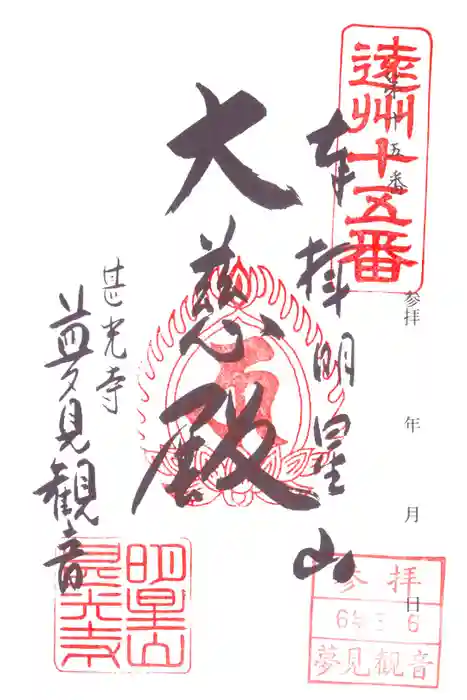 遠州十五番
第十五番
参拝　年　月　日
奉拝 明星山
大慈殿
甚光寺
夢見観音
明星山
甚光寺
参拝
6年3 6
夢見観音